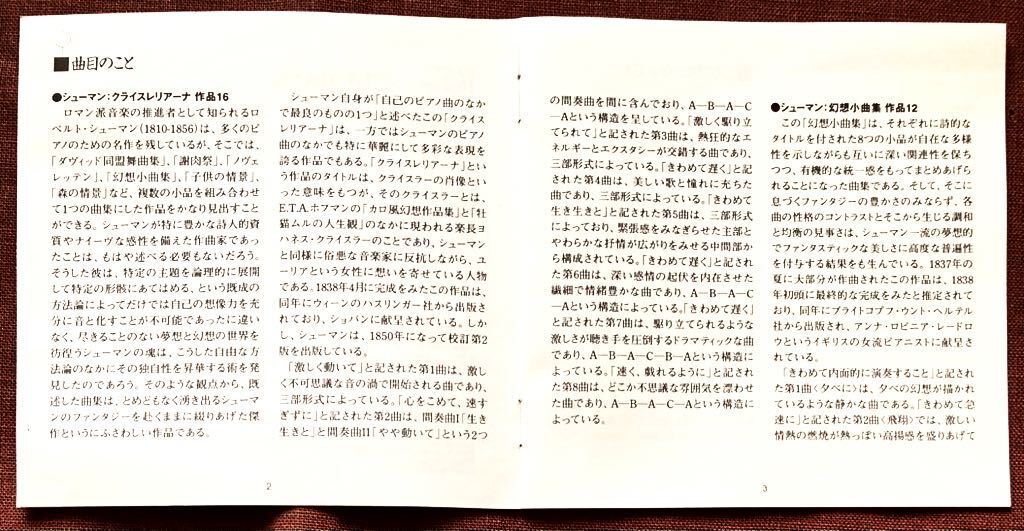 ■曲目のこと
●シューマン:クライスレリアーナ 作品16
ロマン派音楽の推進者として知られるロ
ベルト・シューマン(1810-1856)は、多くのピ
アノのための名作を残しているが、そこでは、
「ダヴィッド同盟舞曲集」、「謝肉祭」、「ノヴェ
レッテン」、「幻想小曲集」、「子供の情景」、
「森の情景」など、複数の小品を組み合わせ
て1つの曲集にした作品をかなり見出すこと
ができる。シューマンが特に豊かな詩人的資
質やナイーヴな感性を備えた作曲家であっ
たことは、もはや述べる必要もないだろう。
そうした彼は、特定の主題を論理的に展開
して特定の形骸にあてはめる、という既成の
方法論によってだけでは自己の想像力を充
分に音と化すことが不可能であったに違い
なく、尽きることのない夢想と幻想の世界を
彷徨うシューマンの魂は、こうした自由な方
法論のなかにその独自性を昇華する術を発
見したのであろう。そのような観点から、既
述した曲集は、とめどもなく湧き出るシューマ
ンのファンタジーを赴くままに綴りあげた傑
作というにふさわしい作品である。
シューマン自身が「自己のピアノ曲のなか
で最良のものの1つ」と述べたこの「クライス
レリアーナ」は、一方ではシューマンのピアノ
曲のなかでも特に華麗にして多彩な表現を
誇る作品でもある。「クライスレリアーナ」とい
う作品のタイトルは、クライスラーの肖像とい
った意味をもつが、そのクライスラーとは、
E.T.A.ホフマンの「カロ風幻想作品集」と「牡
猫ムルの人生観」のなかに現われる楽長ヨ
ハネス・クライスラーのことであり、シューマン
と同様に俗悪な音楽家に反抗しながら、ユ
ーリアという女性に想いを寄せている人物
である。1838年4月に完成をみたこの作品は、
同年にウィーンのハスリンガー社から出版さ
れており、ショパンに献呈されている。しか
し、シューマンは、1850年になって校訂第2
版を出版している。
「激しく動いて」と記された第1曲は、激し
く不可思議な音の渦で開始される曲であり、
三部形式によっている。「心をこめて、速す
ぎずに」と記された第2曲は、間奏曲I「生き
生きと」と間奏曲II「やや動いて」という2つ
2
の間奏曲を間に含んでおり、A―B―A―C
―Aという構造を呈している。「激しく駆り立
てられて」と記された第3曲は、熱狂的なエ
ネルギーとエクスタシーが交錯する曲であり、
三部形式によっている。「きわめて遅く」と記
された第4曲は、美しい歌と憧れに充ちた
曲であり、三部形式によっている。「きわめて
生き生きと」と記された第5曲は、三部形式
によっており、緊張感をみなぎらせた主部と
やわらかな抒情が広がりをみせる中間部か
ら構成されている。「きわめて遅く」と記され
た第6曲は、深い感情の起伏を内在させた
繊細で情緒豊かな曲であり、A―B―A―C
―Aという構造によっている。「きわめて速く」
と記された第7曲は、駆り立てられるような
激しさが聴き手を圧倒するドラマティックな曲
であり、A―B―A―C―B―Aという構造に
よっている。「速く、戯れるように」と記され
た第8曲は、どこか不思議な雰囲気を漂わせ
た曲であり、A―B―A―C―Aという構造に
よっている。
●シューマン:幻想小曲集 作品12
この「幻想小曲集」は、それぞれに詩的な
タイトルを付された8つの小品が自在な多様
性を示しながらも互いに深い関連性を保ち
つつ、有機的な統一感をもってまとめあげら
れることになった曲集である。そして、そこに
息づくファンタジーの豊かさのみならず、各
曲の性格のコントラストとそこから生じる調和
と均衡の見事さは、シューマン一流の夢想的
でファンタスティックな美しさに高度な普遍性
を付与する結果をも生んでいる。1837年の
夏に大部分が作曲されたこの作品は、1838
年初頭に最終的な完成をみたと推定されて
おり、同年にブライトコプフ・ウント・ヘルテル
社から出版され、アンナ・ロビニア・レードロ
ウというイギリスの女流ピアニストに献呈さ
れている。
「きわめて内面的に演奏すること」と記され
た第1曲〈夕べに〉は、夕べの幻想が描かれ
ているような静かな曲である。「きわめて急
速に」と記された第2曲〈飛翔〉では、激しい
情熱の燃焼が熱っぽい高揚感を盛りあげて
3